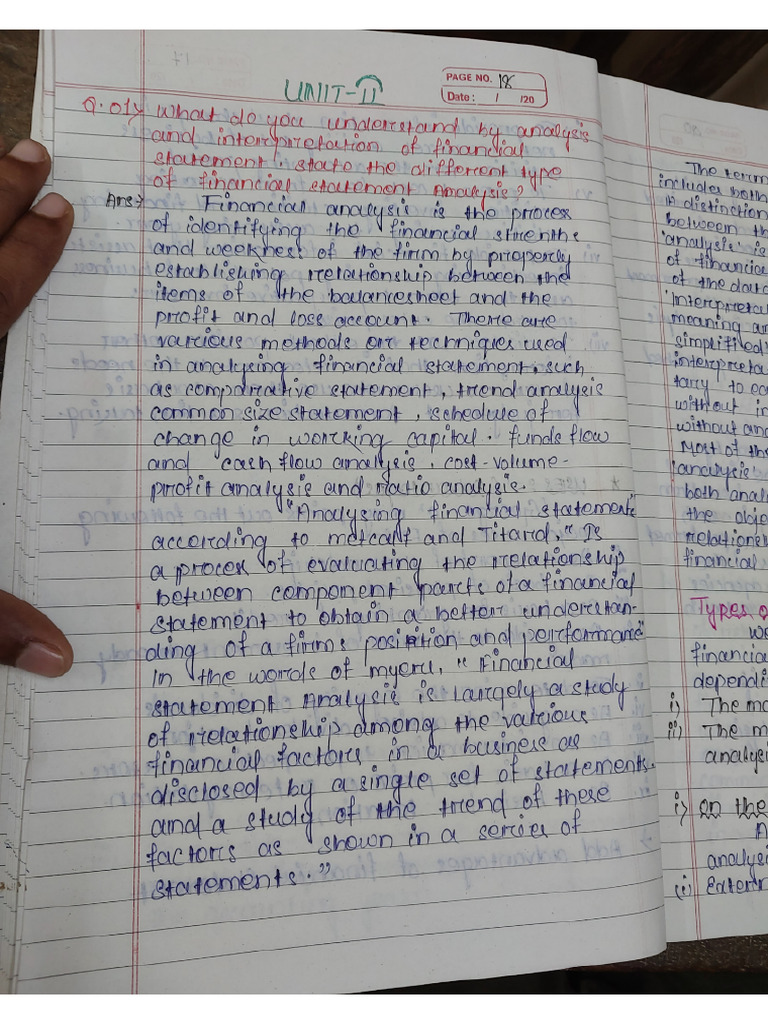 UNIT-II
PAGE NO. 18
Date: / /20
Q.01) What do you understand by analysis
and interpretation of financial
statement. state the different type
of financial statement Analysis?
Ans:> Financial analysis is the process
of identifying the financial strenths
and weekness of the firm by property
establishing relationship between the
items of the balancesheet and the
profit and loss account. There are
various methods or techniques used
in analysing financial statement, such
as comparative statement, trend analysis
common size statement, schedule of
change in working capital. funds flow
and cash flow analysis. cost-volume-
profit analysis and ratio analysis.
"Analysing financial statement"
according to metcalf and Titard, "Is
a process of evaluating the relationship
between component parts of a financial
statement to obtain a better understan-
ding of a firms position and performance"
In the words of myeru, "Financial
statement Analysis is Largely a study
of relationship among the various
financial factors in a business as
disclosed by a single set of statements.
and a study of the trend of these
factors as shown in a series of
statements."
The term
includes both
in distinction
between th
'analysis' is
of financia
of the data
'Interpreta
meaning an
simplified
interpreta
tary to ea
without in
without ana
Most of the
'analysis'
both anal
the obje
relations
financial
Types o
we
financia
dependi
i) The ma
ii) The m
analysi
i) on the
A
analysi
(i) Extern